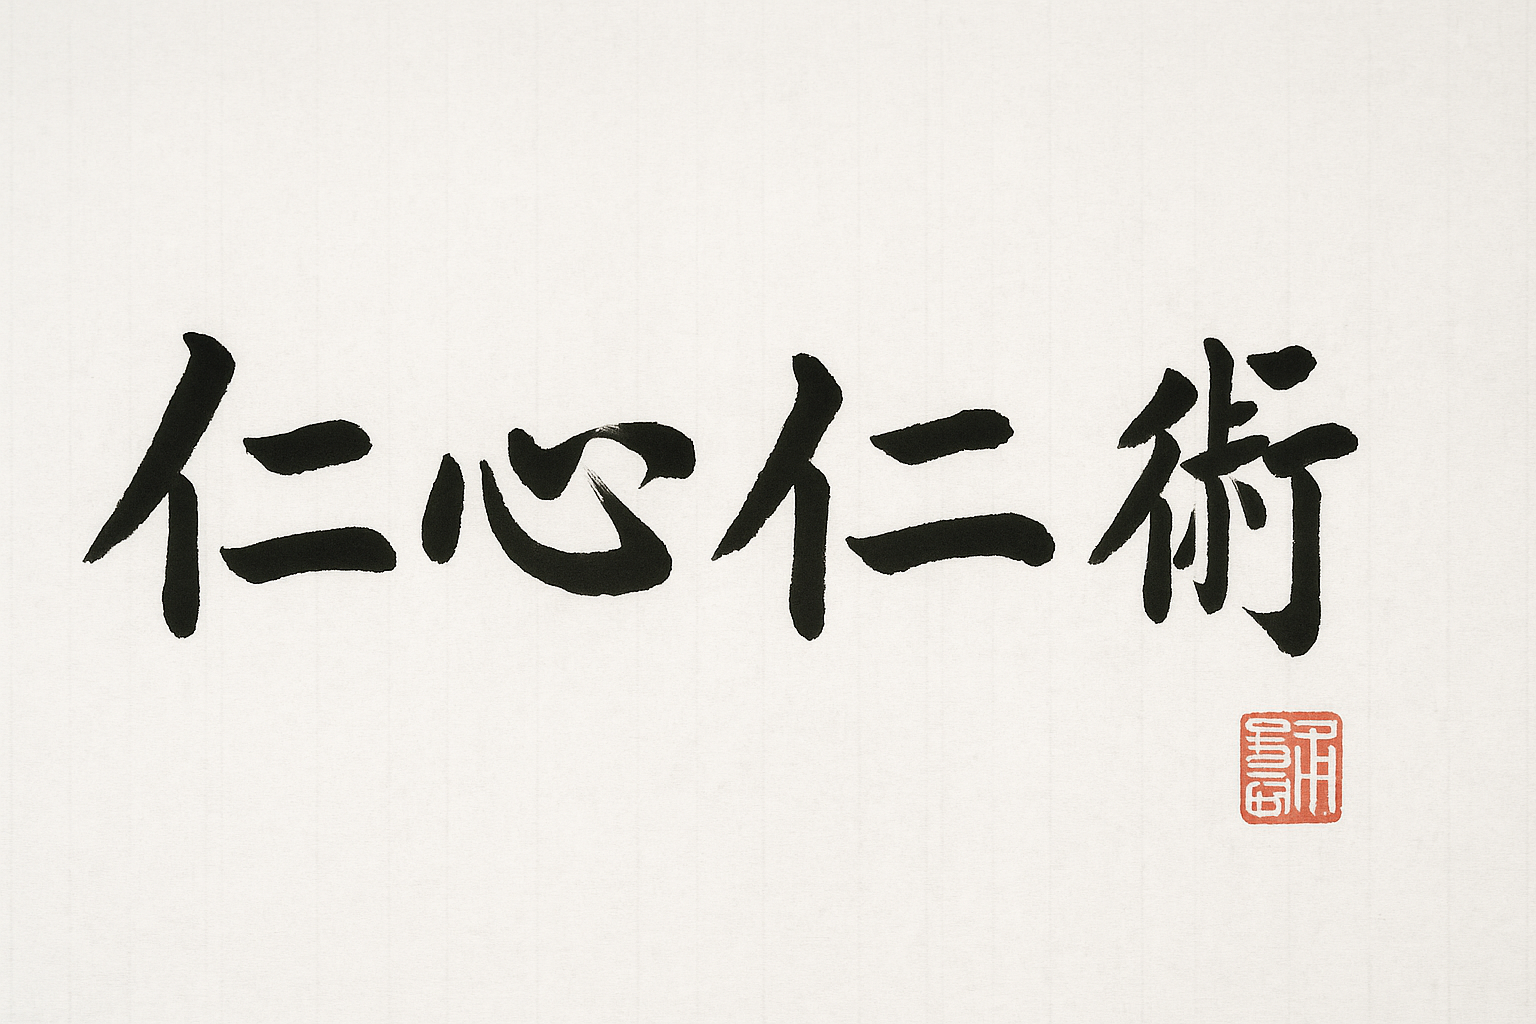 仁心仁術